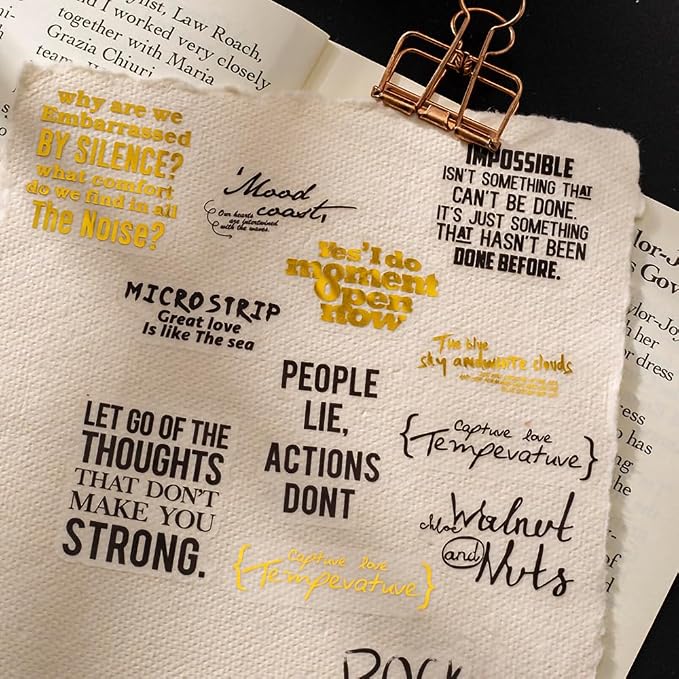 ylist, Law Roach,
and I worked very closely
together with Maria
Grazia Chiuri
why are we
Embarrassed
BY SILENCE?
what comfort
do we find in all
The Noise?
'Mood
coast,
Our hearts
are intertwined
with the waves.
IMPOSSIBLE
ISN'T SOMETHING THAT
CAN'T BE DONE.
IT'S JUST SOMETHING
THAT HASN'T BEEN
DONE BEFORE.
Yes'I do
moment
Open
now
MICROSTRIP
Great love
Is like The sea
The blue
sky andwhite clouds
PEOPLE
LIE,
ACTIONS
DONT
{Captuve love
Tempevatuve}
LET GO OF THE
THOUGHTS
THAT DON'T
MAKE YOU
STRONG.
chloe Walnut
and Nuts
{Captuve love
Tempevatuve}
ROCK
ylor-Jo
Gov
ylor-Joy
h her
r dress
ess
has
ng
he